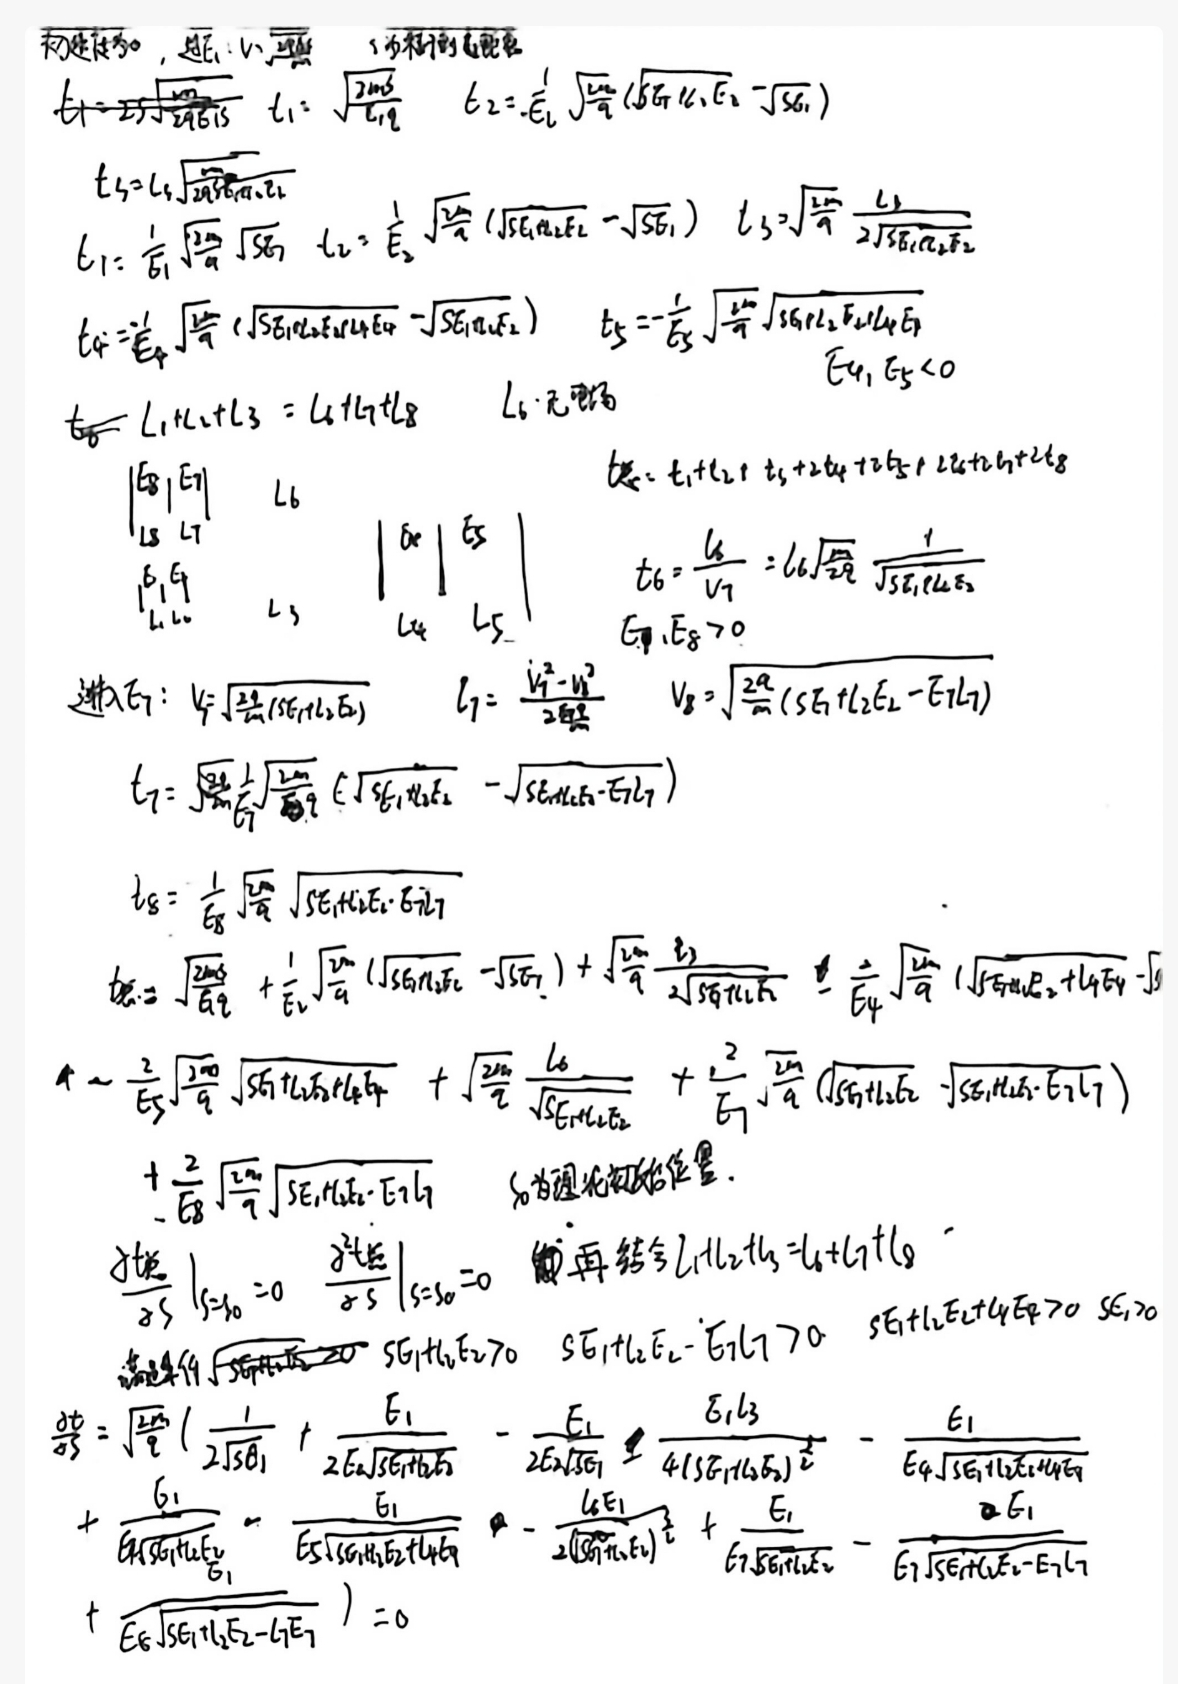 初速度为0，进E₁: V₁ s为
t₁ = √(2ms/(E₁q)) t₂ = 1/E₂ √(2m/q) (√(SE₁+L₂E₂) - √(SE₁))
t₁ = 1/E₁ √(2m/q) √(SE₁) t₂ = 1/E₂ √(2m/q) (√(SE₁+L₂E₂) - √(SE₁)) t₃ = √(2m/q) L₃/(2√(SE₁+L₂E₂))
t₄ = 1/E₄ √(2m/q) (√(SE₁+L₂E₂+L₄E₄) - √(SE₁+L₂E₂)) t₅ = -1/E₅ √(2m/q) √(SE₁+L₂E₂+L₄E₄)
E₄, E₅ < 0
L₁+L₂+L₃ = L₆+L₇+L₈ L₆·无电场
t总 = t₁+t₂+t₃+2t₄+2t₅+2t₆+2t₇+2t₈
E₈ E₇ L₆
L₈ L₇
E₄ E₅
L₁ L₂ L₃ L₄ L₅
t₆ = L₆/V₇ = L₆√(m/2q) 1/√(SE₁+L₂E₂)
E₇, E₈ > 0
进入E₇: V₇ = √(2q/m (SE₁+L₂E₂)) V₈ = √(2q/m (SE₁+L₂E₂-E₇L₇))
t₇ = 1/E₇ √(2m/q) (√(SE₁+L₂E₂) - √(SE₁+L₂E₂-E₇L₇))
t₈ = 1/E₈ √(2m/q) √(SE₁+L₂E₂-E₇L₇)
t总 = √(2ms/(E₁q)) + 1/E₂ √(2m/q) (√(SE₁+L₂E₂) - √(SE₁)) + √(2m/q) L₃/(2√(SE₁+L₂E₂)) + 2/E₄ √(2m/q) (√(SE₁+L₂E₂+L₄E₄) - √
- 2/E₅ √(2m/q) √(SE₁+L₂E₂+L₄E₄) + √(2m/q) L₆/√(SE₁+L₂E₂) + 2/E₇ √(2m/q) (√(SE₁+L₂E₂) - √(SE₁+L₂E₂-E₇L₇))
+ 2/E₈ √(2m/q) √(SE₁+L₂E₂-E₇L₇) S₀为理论初始位置.
∂t总/∂S |s=s₀ = 0 ∂²t总/∂S |s=s₀ = 0 再结合L₁+L₂+L₃=L₆+L₇+L₈
SE₁+L₂E₂+L₄E₄>0 SE₁>0
SE₁+L₂E₂>0 SE₁+L₂E₂-E₇L₇>0
∂t/∂S = √(2m/q) ( 1/(2√(SE₁)) + E₁/(2E₂√(SE₁+L₂E₂)) - E₁/(2E₂√(SE₁)) - E₁L₃/(4(SE₁+L₂E₂)^(3/2)) - E₁/(E₄√(SE₁+L₂E₂+L₄E₄))
+ E₁/(E₄√(SE₁+L₂E₂)) - E₁/(E₅√(SE₁+L₂E₂+L₄E₄)) - L₆E₁/(2(SE₁+L₂E₂)^(3/2)) + E₁/(E₇√(SE₁+L₂E₂)) - E₁/(E₇√(SE₁+L₂E₂-E₇L₇))
+ E₁/(E₈√(SE₁+L₂E₂-L₇E₇)) ) = 0